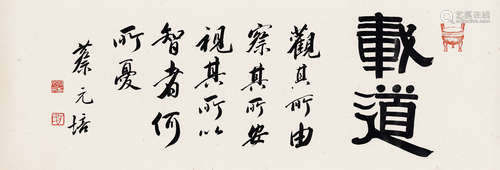 載道
觀其所由
察其所安
視其所以
智者何
所憂
蔡元培